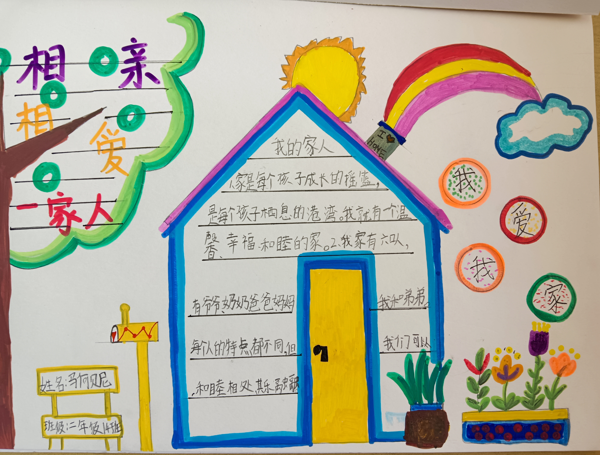 相亲
相爱
一家人
I ❤ HOME
我爱我家
我的家人
家是每个孩子成长的摇篮,
是每个孩子栖息的港湾。我就有一个温
馨、幸福、和睦的家。我家有六口人,
有爷爷奶奶爸爸妈妈 我和弟弟,
每个人的特点都不同,但 我们可以
和睦相处,其乐融融
姓名:马阿贝尼
班级:二年级